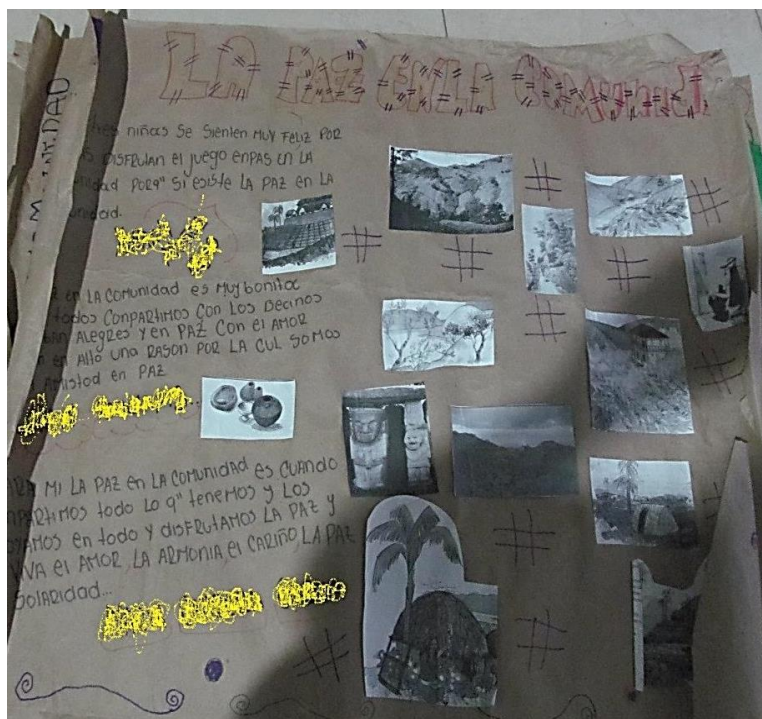 LA PAZ EN LA COMUNIDAD
niñas se sienten muy feliz por
DISFRUTAN el juego enpas en la
porq" si esiste LA PAZ en la
en LA comunidad es muy bonitoc
todos conpartimos con los becinos
Alegres y en PAZ con el AMOR
en en Alto una RASON POR LA CUL SOMOS
Amistod en PAZ
MI LA PAZ en LA comunidad es cuando
todo lo q" tenemos y los
en todo y disfrutamos LA PAZ y
el AMOR, LA ARMONIA, el CARIÑO, LA PAZ
SOLARIDAD...